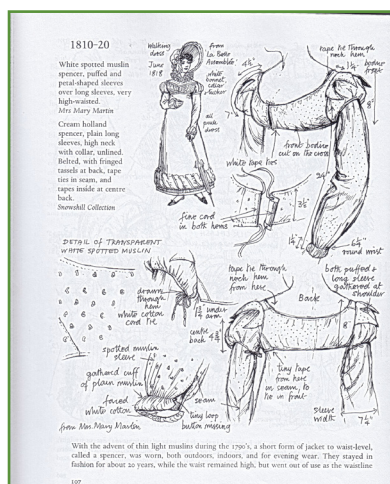 1810–20
White spotted muslin
spencer, puffed and
petal-shaped sleeves
over long sleeves, very
high-waisted.
Mrs Mary Martin
Cream holland
spencer, plain long
sleeves, high neck
with collar, unlined.
Belted, with fringed
tassels at back, tape
ties in seam, and
tapes inside at centre
back.
Snowshill Collection
Walking
dress
June
1818
from
La Belle
Assemblée
white
bonnet,
collar
tucker
silk
dress
tape tie through
neck hem
4½"
1¼"
bodice
front
7"
8"
front bodice
cut on the cross
white tape ties
24"
3½"
fine cord
in both hems
6½"
round wrist
DETAIL of TRANSPARENT
WHITE SPOTTED MUSLIN
drawn
through
hem
white cotton
cord tie
tape tie through
neck hem
from here
both puffed &
long sleeve
gathered at
shoulder
Back
under
arm
centre
back 4¾"
8"
spotted muslin
sleeve
gathered cuff
of plain muslin
white cotton
seam
tiny loop
button missing
from Mrs. Mary Martin
tiny tape
from here
in seam, to
tie in front
sleeve
width
7½"
With the advent of thin light muslins during the 1790's, a short form of jacket to waist-level,
called a spencer, was worn, both outdoors, indoors, and for evening wear. They stayed in
fashion for about 20 years, while the waist remained high, but went out of use as the waistline
107